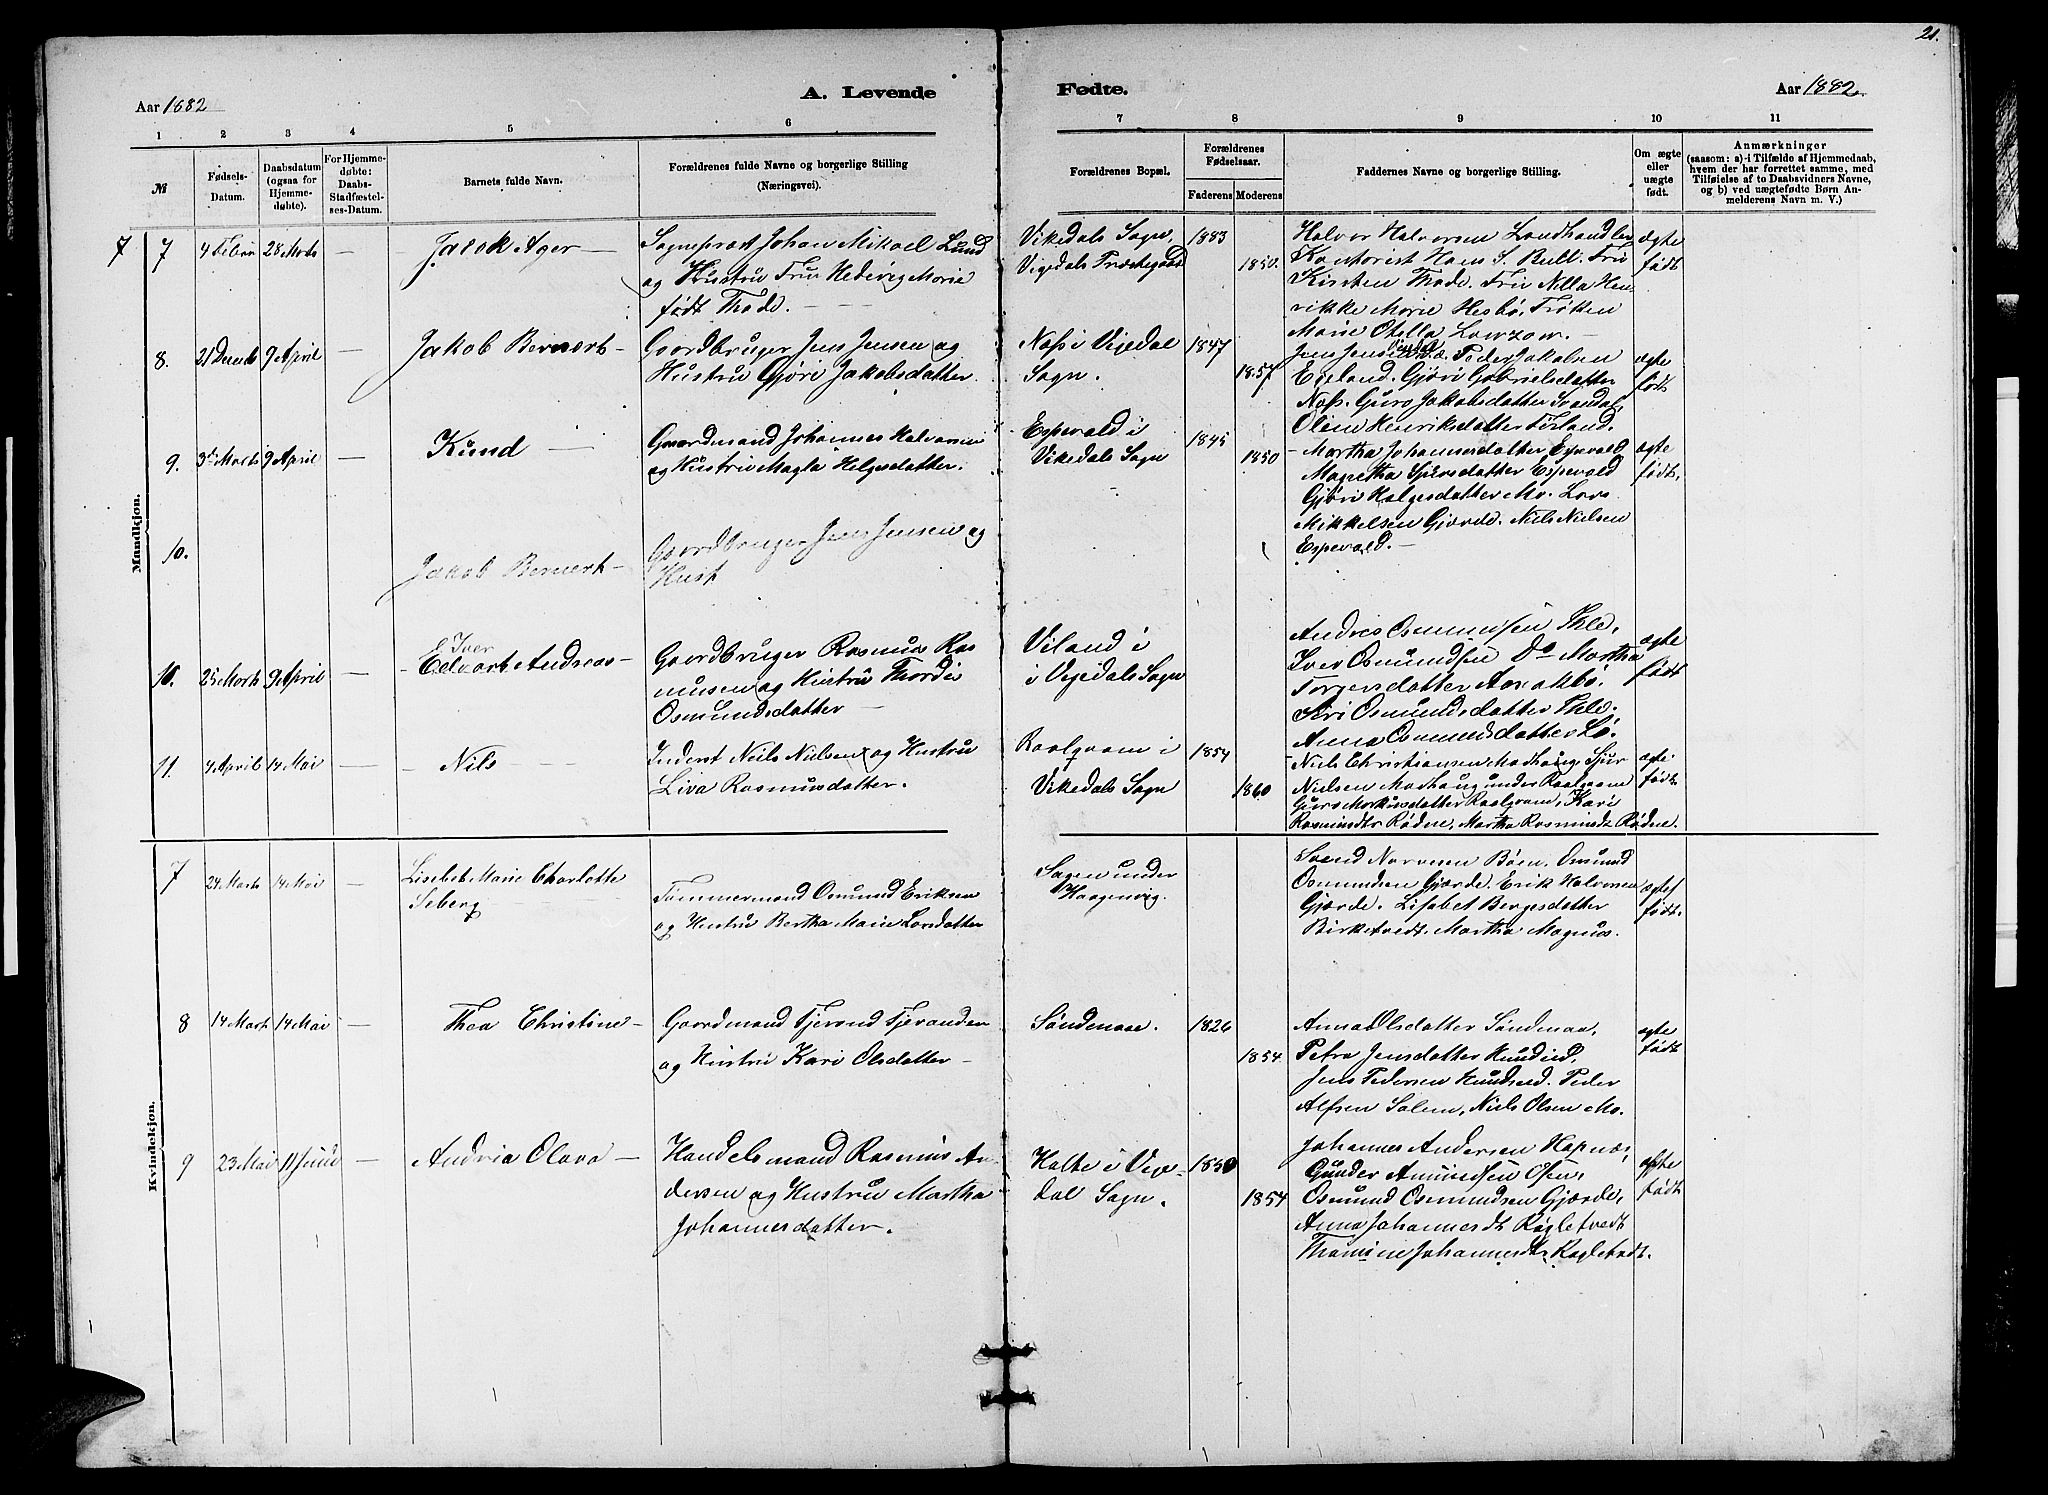 21.
Aar 1882
A. Levende
Fødte.
Aar 1882
1 2 3 4 5 6
7 8 9 10 11
№
Fødsels-
Datum.
Daabsdatum
(ogsaa for
Hjemme-
døbte).
For Hjemme-
døbte:
Daabs-
Stadfæstel-
ses-Datum.
Barnets fulde Navn.
Forældrenes fulde Navne og borgerlige Stilling
(Næringsvei).
Forældrenes Bopæl.
Forældrenes
Fødselsaar.
Faderens
Moderens
Faddernes Navne og borgerlige Stilling.
Om ægte
eller
uægte
født.
Anmærkninger
(saasom: a) i Tilfælde af Hjemmedaab,
hvem der har forrettet samme, med
Tilføielse af to Daabsvidners Navne,
og b) ved uægtefødte Børn An-
melderens Navn m. V.)
Mandkjøn.
7 7 28 Marts — Jacob Ager —
Sogneprest Johan Mikael Lund
og Hustru Fru Hedevig Marie
født Thode. —
Vikedals Sogn,
Vigedals Præstegaard
1883
1850.
Halvor Halvorsen Landhandler
Hans S. Bull. Fru
Kirsten Thode. Fru Nilla Hen-
rikke Marie Hesbø, Frøken
Marie Otella Lowzow. —
ægte
født
8. 21 Decemb 9 April — Jakob Bernert —
Gaardbruger Jens Jensen og
Hustru Gjøri Jakobsdatter.
Næs i Vigedal
Sogn.
1847
1857
Jens Jensen Peder Jakobsen
Egeland. Gjøri Gabrielsdatter
Næs. Guro Jakobsdatter Svandal,
Oline Henriksdatter Førland.
ægte
født
9. 3de Marts 9 April — Knud —
Gaardmand Johannes Halvorsen
og Hustru Magla Helgesdatter.
Espevold i
Vikedals Sogn
1845
1850
Martha Johannesdatter Espevold
Magretha Sjursdatter Espevold
Gjøri Helgesdatter Mo. Lars
Mikkelsen Gjerde. Niels Nielsen
Espevold. —
ægte
født.
10.
Jakob Bernert —
Gaardbruger Jens Jensen og
Hust
10. 25 Marts 9 April —
Iver
Edvart Andreas —
Gaardbruger Rasmus Ras
musen og Hustru Thordis
Osmundsdatter —
Viland i
i Vigedals Sogn
Andres Osmundsen Ihle,
Iver Osmundsen Do Martha
Torgersdatter
Siri Osmundsdatter Ihle.
Anna Osmundsdatter Lø.
ægte
født
11. 4 April 14 Mai — Nils —
Inderst Neils Nielsen og Hustru
Liva Rasmusdatter.
Raalqvam i
Vikedals Sogn
1854
1860
Niels Christiansen Madhaug Sjur
Nielsen Madhaug under Raalqvam
Guro Markusdatter Raalqvam, Kari
Rasmusdtr Rødne, Martha Rasmusdt Rødne.
ægte
født.
Kvindekjøn.
7 24 Marts 14 Mai —
Lisebet Marie Charlotte
Seberg
Tømmermand Osmund Eriksen
og Hustru Bertha Marie Larsdatter
Sagen under
Haagenvig.
Svend Børn. Osmund
Osmundsen Gjærde. Erik Halvorsen
Gjærde. Lisabet Børgesdatter
Birketvedt. Martha Magnus.
ægte
født.
8 14 Marts 14 Mai — Thea Christine —
Gaardmand Tjerand Tjerandsen
og Hustru Kari Olsdatter —
Søndenaae.
1826
1854
Anna Olsdatter Søndenaa,
Petra Jensdatter
Jens Pedersen Peder
Alfsen Salem, Niels Olsen Mo.
ægte
født
9 23 Mai 11 Juni — Andria Olava —
Handelsmand Rasmus An
dersen og Hustru Martha
Johannesdatter.
Holte i Vige-
dal Sogn.
1850
1854
Johannes Andersen Hapnæs,
Gunder Amundsen Ølen,
Osmund Osmundsen Gjærde,
Anna Johannesdt Røgletvedt
Thomine Johannesdtr Røgletvedt.
ægte
født